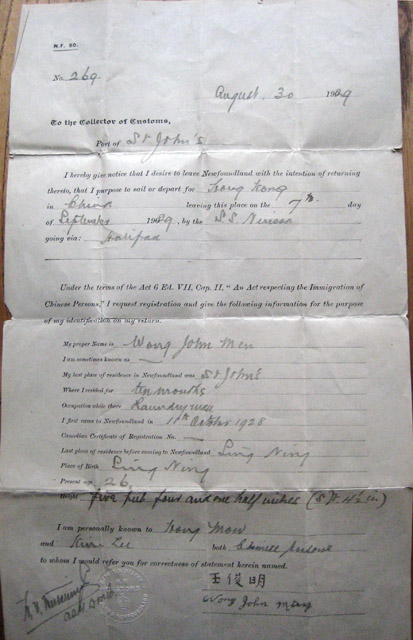 N.F. 80.
No. 269.
August 30 1929
To the Collector of Customs,
Port of St John's
I hereby give notice that I desire to leave Newfoundland with the intention of returning
thereto, that I purpose to sail or depart for Hong Kong
in China leaving this place on the 7th day
of September 1929, by the S.S. Nerissa
going via: Halifax
Under the terms of the Act 6 Ed. VII, Cap. II, "An Act respecting the Immigration of
Chinese Persons," I request registration and give the following information for the purpose
of my identification on my return.
My proper Name is Wong John Men
I am sometimes known as —
My last place of residence in Newfoundland was St John's
Where I resided for ten months
Occupation while there Laundryman
I first came to Newfoundland in 11th October 1928
Canadian Certificate of Registration No. —
Last place of residence before coming to Newfoundland Ling Ning
Place of Birth Ling Ning
Present age 26
Height five feet four and one half inches (5 ft. 4½ in)
I am personally known to Hong
and Lee both Chinese
to whom I would refer you for correctness of statement herein named.
王俊明
Wong John